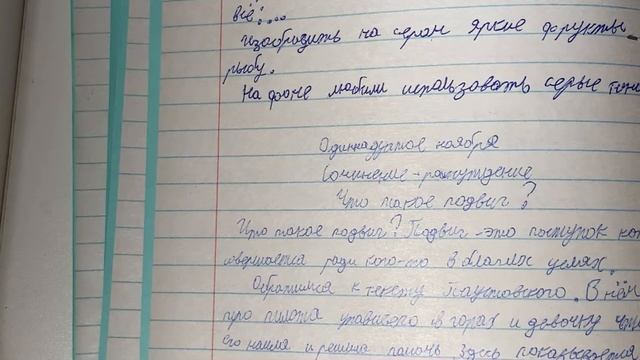 всё....
Изобразить на сером яркие фрукты
рыбу.
На фоне любили использовать серые тона
Одиннадцатое ноября
Сочинение-рассуждение
Что такое подвиг?
Что такое подвиг? Подвиг-это поступок кот
совершается ради кого-то в благих целях.
Обратимся к тексту Паустовского. В нём
про пилота упавшего в горах и девочку
его нашла и решила помочь здесь показывается